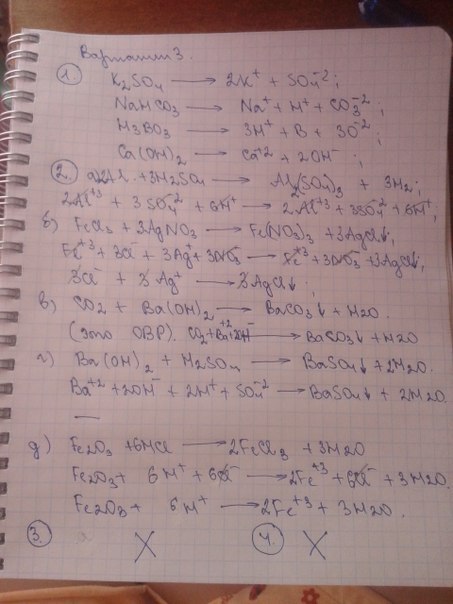 Вариант 3.
1. K2SO4 → 2K+ + SO4-2;
NaHCO3 → Na+ + H+ + CO3-2;
H3BO3 → 3H+ + B + 3O-2;
Ca(OH)2 → Ca+2 + 2OH-;
2. а) 2Al + 3H2SO4 → Al2(SO4)3 + 3H2;
2Al+3 + 3SO4-2 + 6H+ → 2Al+3 + 3SO4-2 + 6H+;
б) FeCl3 + 3AgNO3 → Fe(NO3)3 + 3AgCl↓;
Fe+3 + 3Cl- + 3Ag+ + 3NO3- → Fe+3 + 3NO3- + 3AgCl↓;
3Cl- + 3Ag+ → 3AgCl↓;
в) CO2 + Ba(OH)2 → BaCO3↓ + H2O.
(это ОВР). CO2 + Ba+2 + 2OH- → BaCO3↓ + H2O
г) Ba(OH)2 + H2SO4 → BaSO4↓ + 2H2O.
Ba+2 + 2OH- + 2H+ + SO4-2 → BaSO4↓ + 2H2O.
—
д) Fe2O3 + 6HCl → 2FeCl3 + 3H2O
Fe2O3 + 6H+ + 6Cl- → 2Fe+3 + 6Cl- + 3H2O.
Fe2O3 + 6H+ → 2Fe+3 + 3H2O.
3. X 4. X